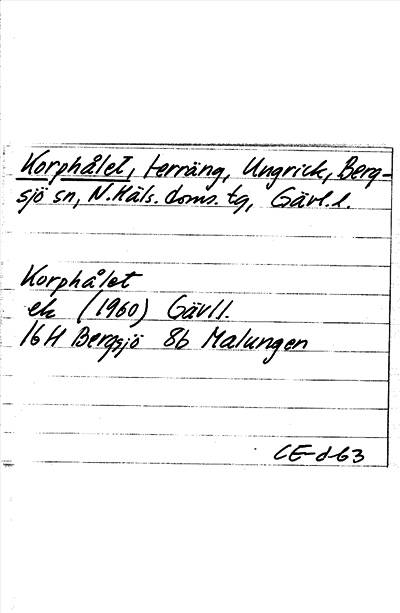 Korphålet, terräng, Ungrick, Berg-
sjö sn, N.Häls. doms. tg, Gävl.l.
Korphålet
ek (1960) Gävll.
16H Bergsjö 8b Malungen
CE-d-63